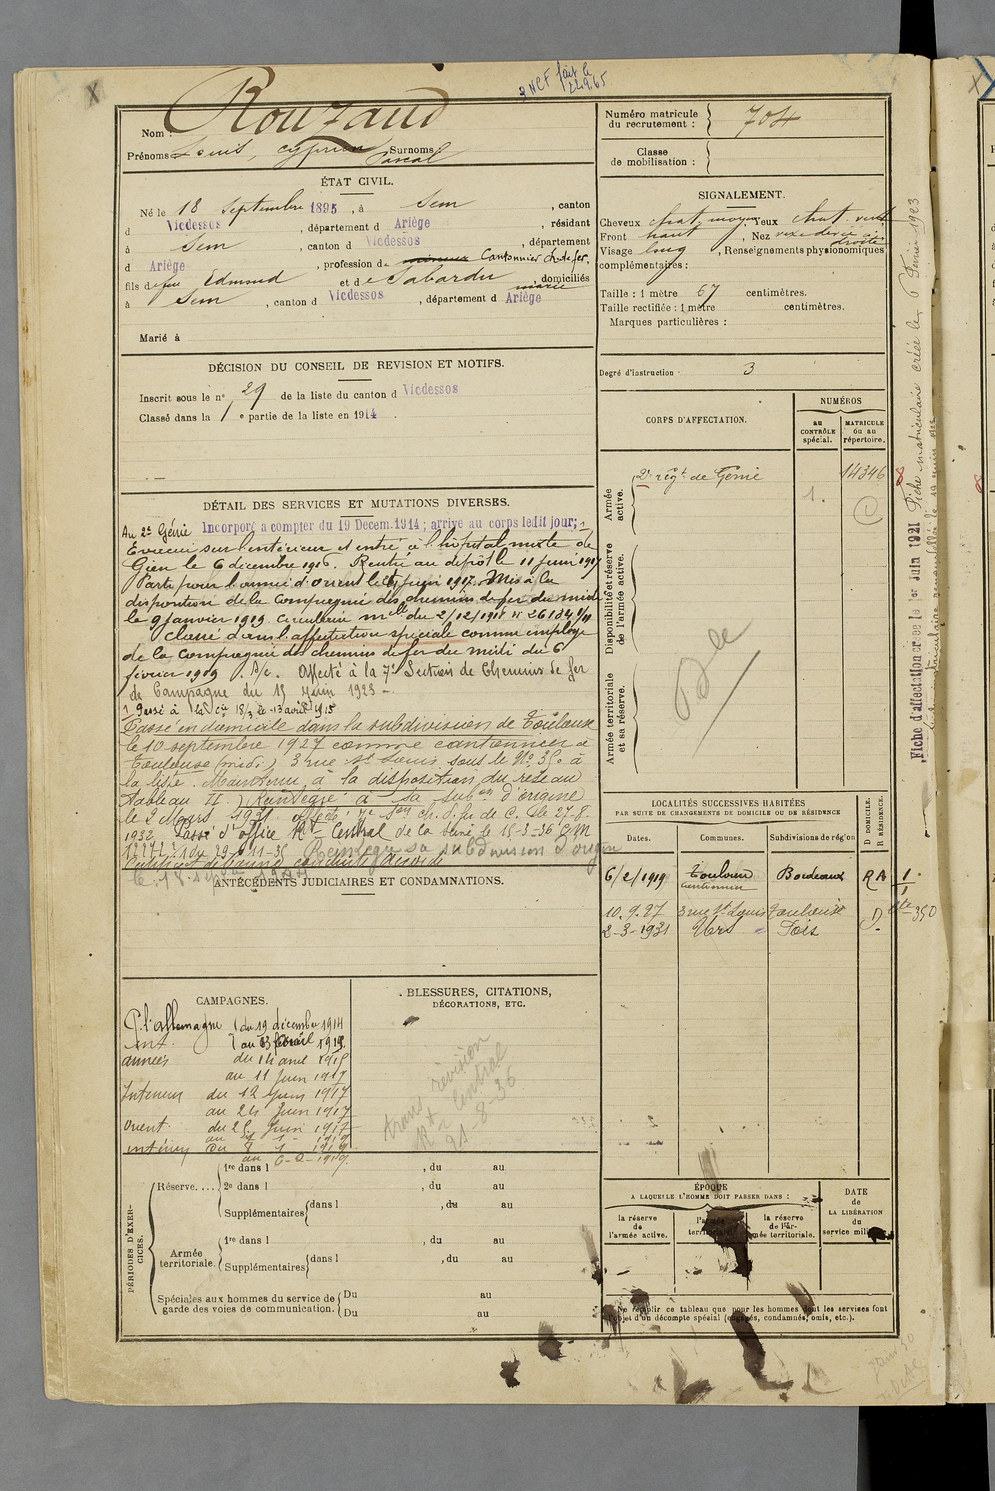 3 NCF fait le
22.9.65
Nom : Rouzaud
Prénoms Louis, Cyprien Pascal Surnoms
ÉTAT CIVIL.
Né le 18 Septembre 1895, à Sem, canton
d Vicdessos, département d Ariège, résidant
à Sem, canton d Vicdessos, département
d Ariège, profession de mineur Cantonnier ch. de fer.
fils de feu Edmond et de Tabardu, domiciliés
à Sem, canton d Vicdessos, département d Ariège
Marié à
DÉCISION DU CONSEIL DE REVISION ET MOTIFS.
Inscrit sous le n° 29 de la liste du canton d Vicdessos
Classé dans la 1e partie de la liste en 1914.
DÉTAIL DES SERVICES ET MUTATIONS DIVERSES.
Au 2e Génie Incorporé à compter du 19 Decem. 1914; arrivé au corps ledit jour; 1
Evacué sur l'intérieur et entré à l'hôpital mixte de
Gien le 6 décembre 1916. Rentré au dépôt le 11 juin 1917
Parti pour l'armée d'orient le 25 juin 1917. Mis à la
disposition de la Compagnie des chemins de fer du midi
le 9 janvier 1919. Circulaire mlle du 2/12/1918 n° 26184 1/11
Classé dans l'affectation spéciale comme employé
de la Compagnie des chemins de fer du midi du 6
février 1919. Affecté à la 7e Section de Chemins de fer
de Campagne du 15 Juin 1923 -
1 Passé à la Cie 18/3 le 13 avril 1915
Passé en domicile dans la subdivision de Toulouse
le 10 septembre 1927 comme cantonnier à
Toulouse (midi) 3 rue St Louis sous le N° 350 à
la liste. Maintenu à la disposition du réseau
Tableau II. Réintégré à sa subon d'origine
le 2 Mars 1931. affecté 7e Son ch. d. fr de C. le 27-8-
1932 Passé d'office Rt Central de la série le 15-3-36 C.M
du 29-11-35 Réintégré sa subdivision d'origine
ANTÉCÉDENTS JUDICIAIRES ET CONDAMNATIONS.
CAMPAGNES.
C. l'allemagne du 19 décembre 1914
int. au 13 avril 1915
armées du 14 avril 1915
au 11 Juin 1917
Intérieur du 12 Juin 1917
au 24 Juin 1917
Orient du 25 Juin 1917
intérieur du 8 1 1919
au 6-2-1919
BLESSURES, CITATIONS,
DÉCORATIONS, ETC.
trans. révision
Rt Central
21-8-36
PÉRIODES D'EXERCICES.
Réserve.... 1re dans l , du au
2e dans l , du au
Supplémentaires dans l , du au
Armée territoriale. 1re dans l , du au
Supplémentaires dans l , du au
Spéciales aux hommes du service de garde des voies de communication. Du au
Du au
Numéro matricule
du recrutement : 704
Classe
de mobilisation :
SIGNALEMENT.
Cheveux chat. moyen Yeux chat. vert
Front haut, Nez vexe dévié à droite
Visage long, Renseignements physionomiques
complémentaires :
Taille : 1 mètre 67 centimètres.
Taille rectifiée : 1 mètre centimètres.
Marques particulières :
Degré d'instruction 3
CORPS D'AFFECTATION.
NUMÉROS
au CONTRÔLE spécial.
MATRICULE ou au répertoire.
Armée active.
2e régt de Génie 14346
1.
C
Disponibilité et réserve de l'armée active.
Armée territoriale et sa réserve.
LOCALITÉS SUCCESSIVES HABITÉES
PAR SUITE DE CHANGEMENTS DE DOMICILE OU DE RÉSIDENCE
D DOMICILE. R RÉSIDENCE.
Dates. Communes. Subdivisions de région
6/2/1919 Toulouse Bordeaux RA 1/1
cantonnier
10.9.27 3 rue St Louis Toulouse D. 350
2-3-1931 Vers Foix
ÉPOQUE
A LAQUELLE L'HOMME DOIT PASSER DANS :
la réserve de l'armée active.
l'armée territoriale.
la réserve de l'armée territoriale.
DATE de LA LIBÉRATION du service militaire.
Ne remplir ce tableau que pour les hommes dont les services font
l'objet d'un décompte spécial (engagés, condamnés, omis, etc.).
Fiche d'affectation créée le 1er Juin 1921 Fiche matriculaire créée le 6 Février 1923